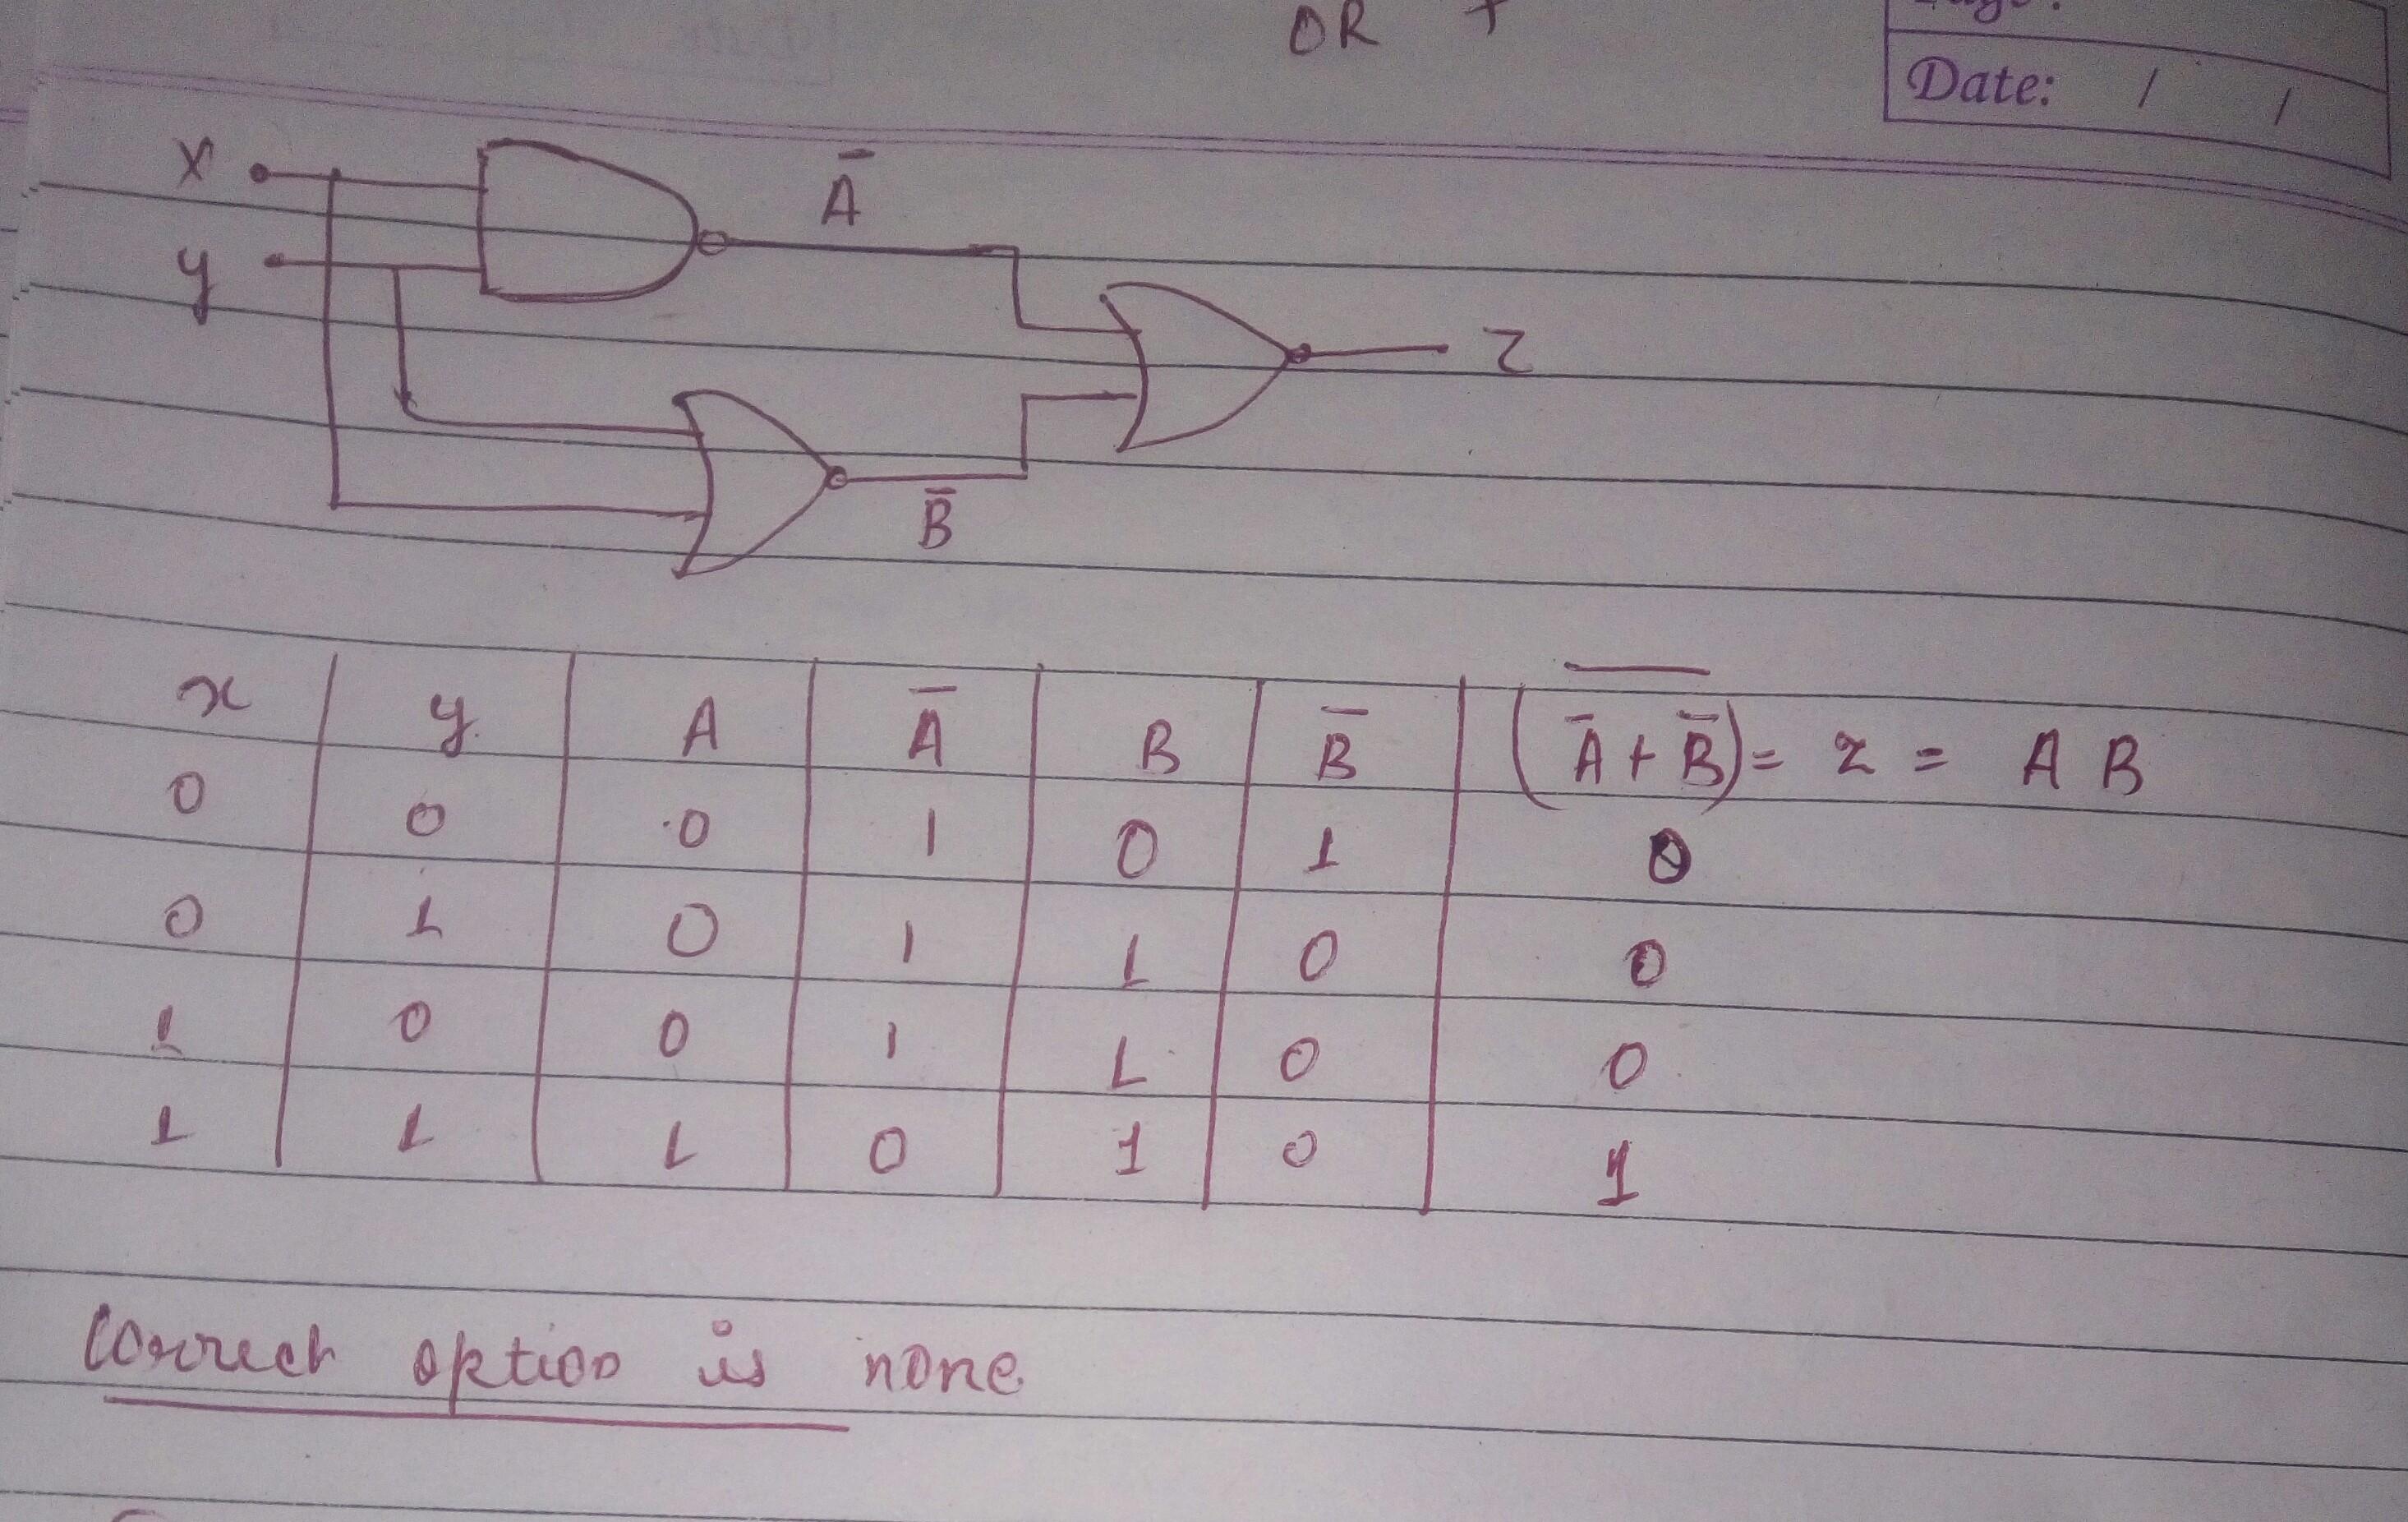 OR +
Date: / /
X
Ā
y
Z
B̄
x y A Ā B B̄ (Ā + B̄)‾ = z = A B
0 0 0 1 0 1 0
0 1 0 1 1 0 0
1 0 0 1 1 0 0
1 1 1 0 1 0 1
Correct option is none